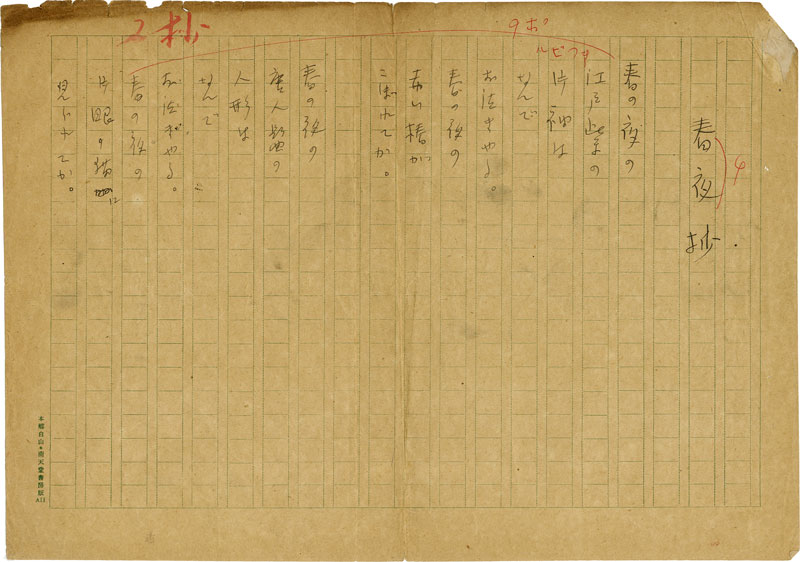 2 抄
9ポ
ルビつキ
春夜抄
4
春の夜の
江戸紫の
片袖は
なんで
お泣きやる。
春の夜の
赤い椿が
こぼれてか。
春の夜の
唐人髷の
人形は
なんで
お泣きやる。
春の夜の
片眼の猫に
見られてか。
本郷白山・南天堂書房版 A11